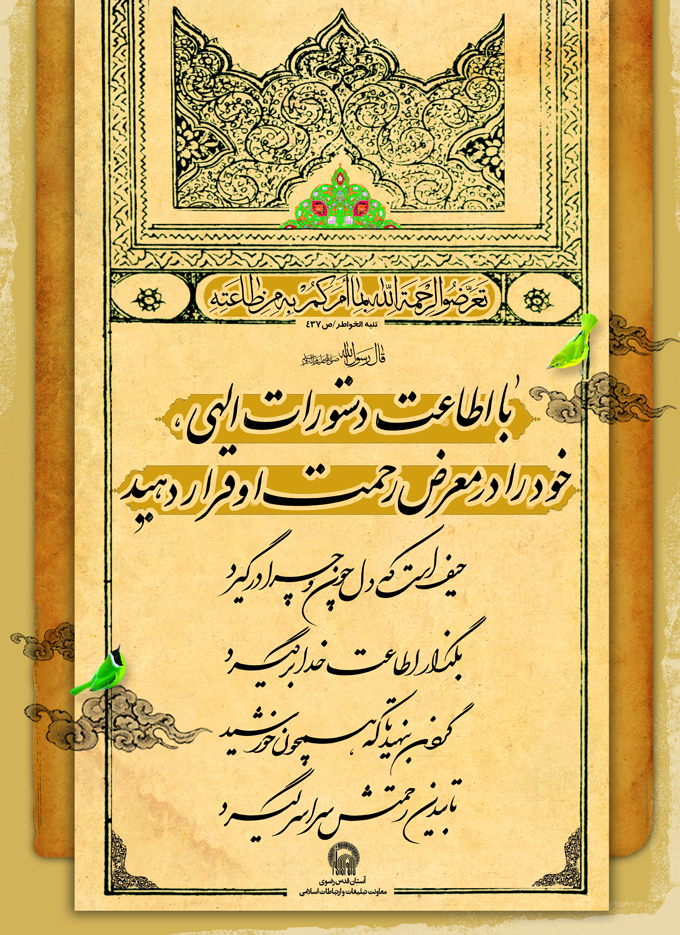 تَعَرَّضُوا لِرَحْمَةِ اللهِ بِما أَمَرَكُمْ بِهِ مِنْ طاعَتِهِ
تنبه الخواطر /ص ٤٣٧
قال رسول الله
با اطاعت دستورات الهی،
خود را در معرض رحمت او قرار دهید
حیف است که دل چون و چرا در گیرد
بگذار اطاعت خدا بر گیرد
گردن بنهید تا که همچون خورشید
تابیدن رحمتش سراسر گیرد
آستان قدس رضوی
معاونت تبلیغات و ارتباطات اسلامی